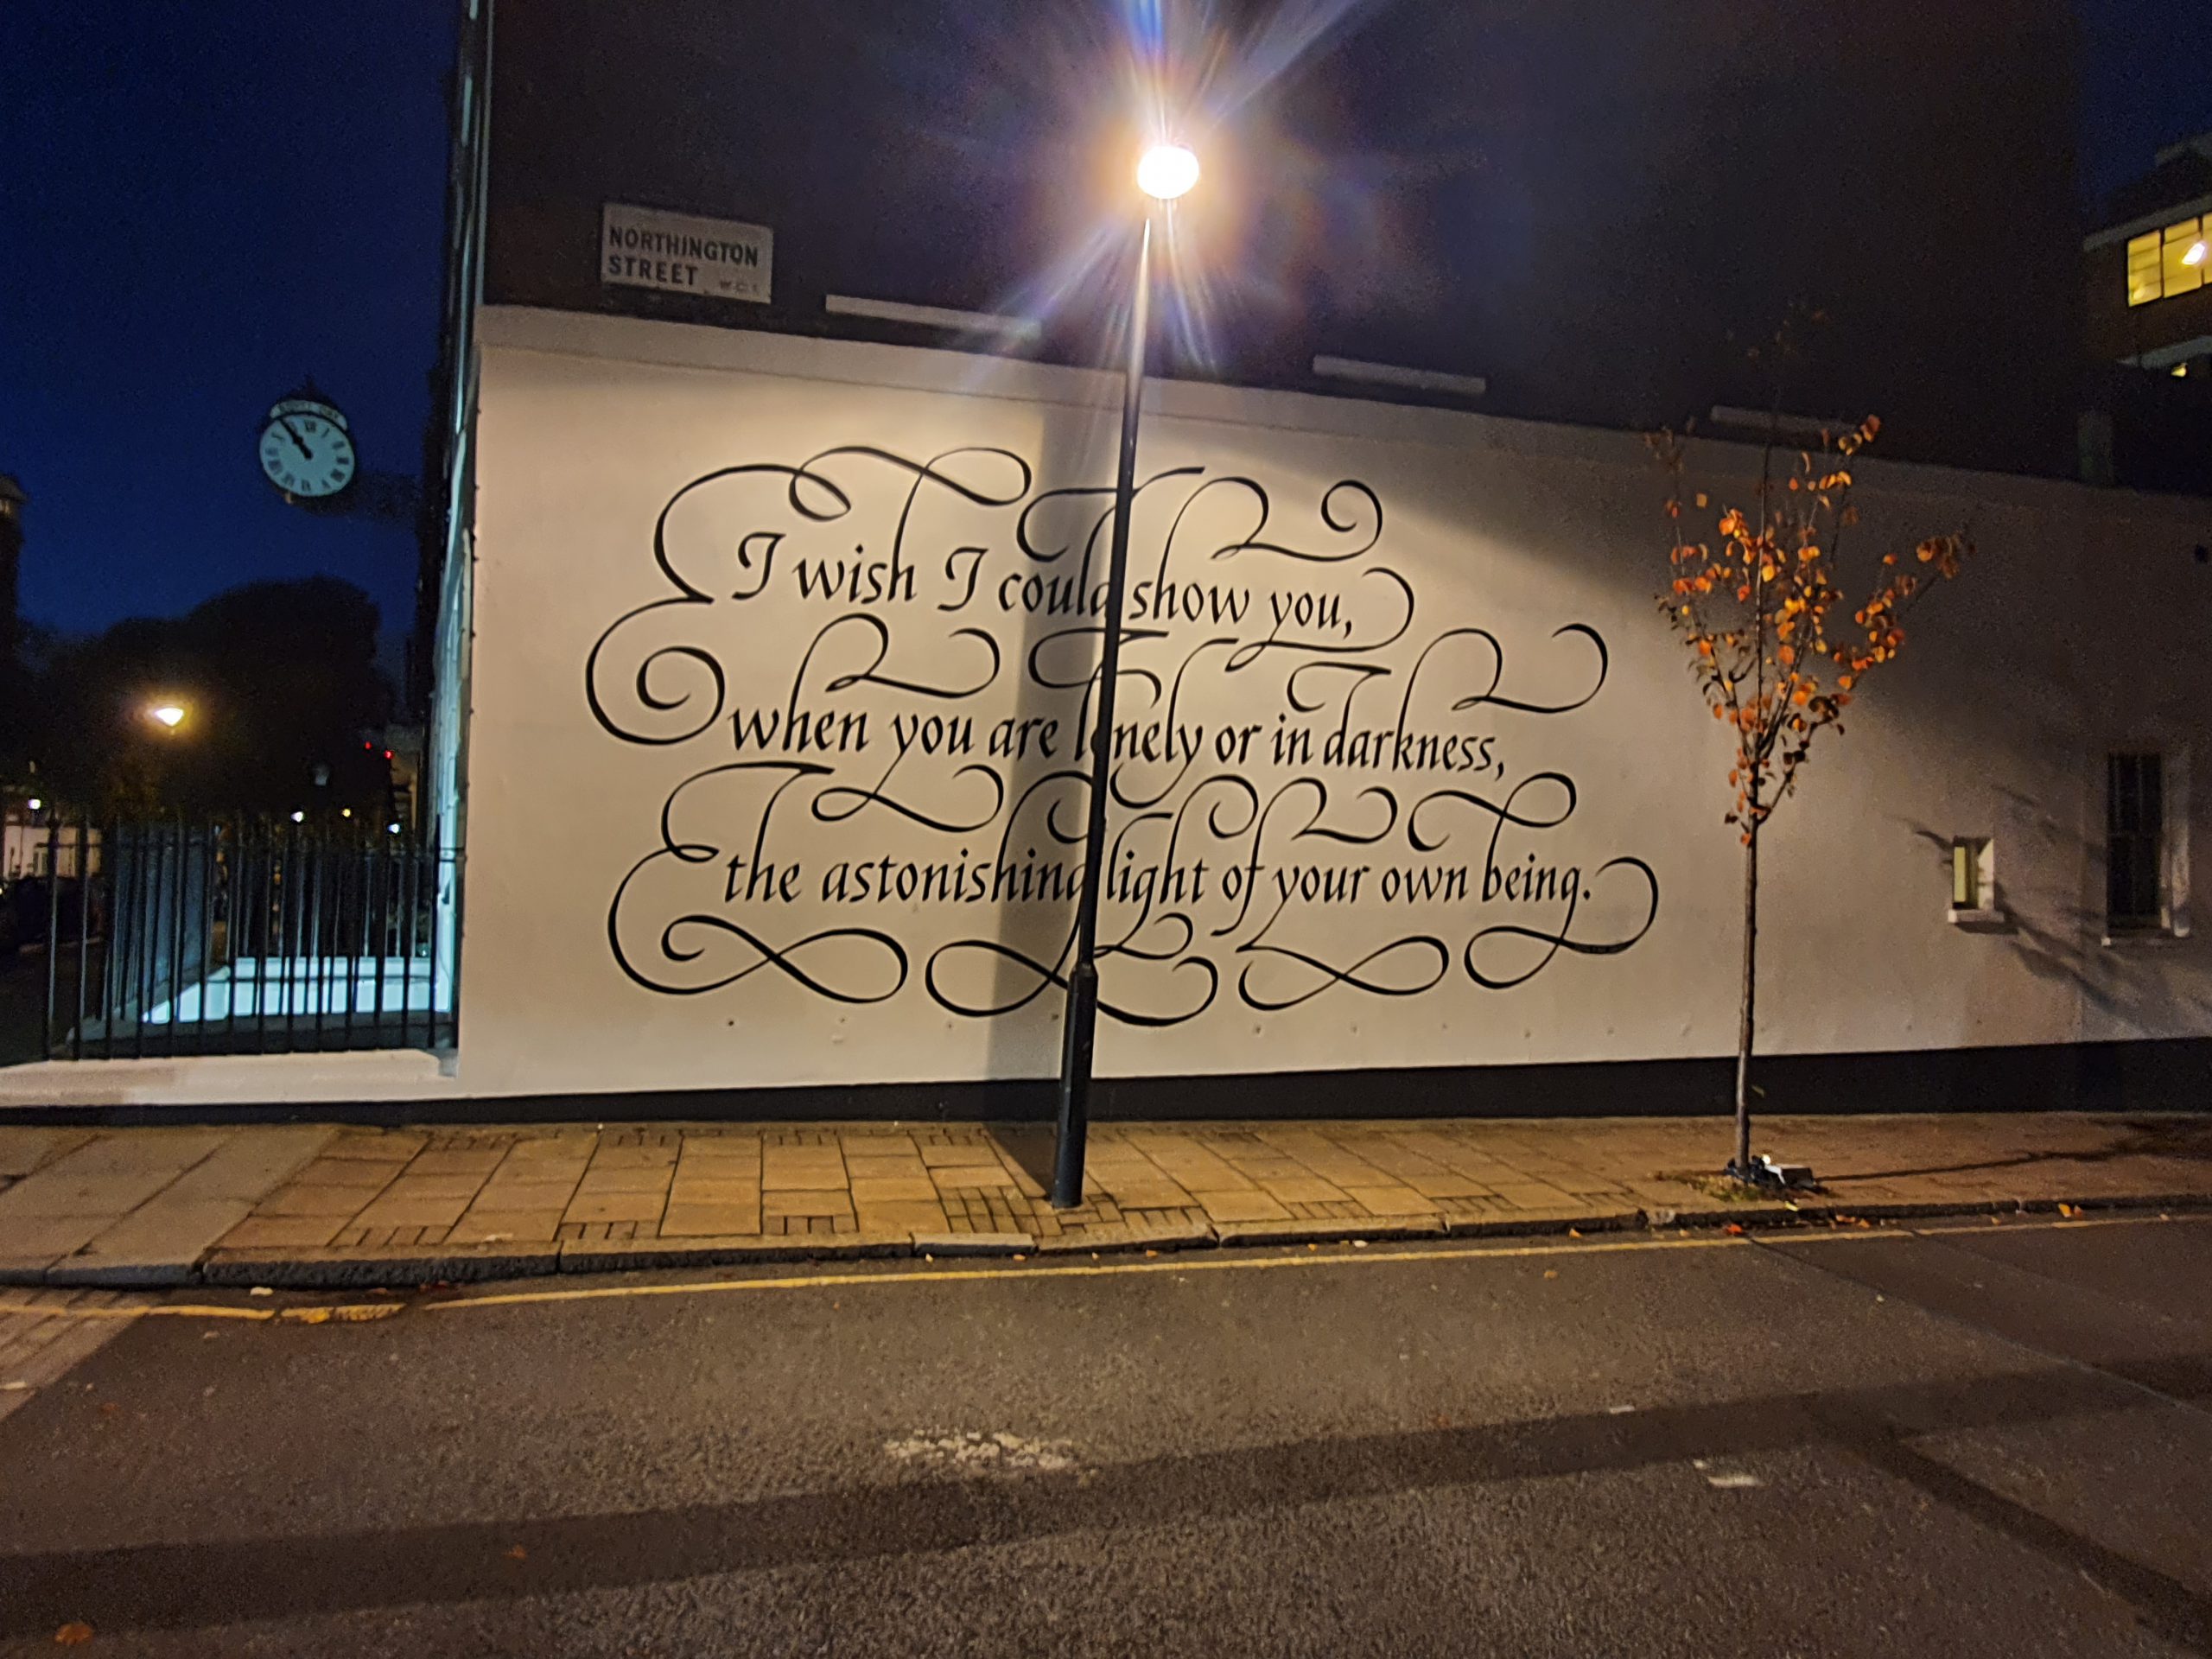 NORTHINGTON
STREET W.C.1
I wish I could show you,
when you are lonely or in darkness,
the astonishing light of your own being.